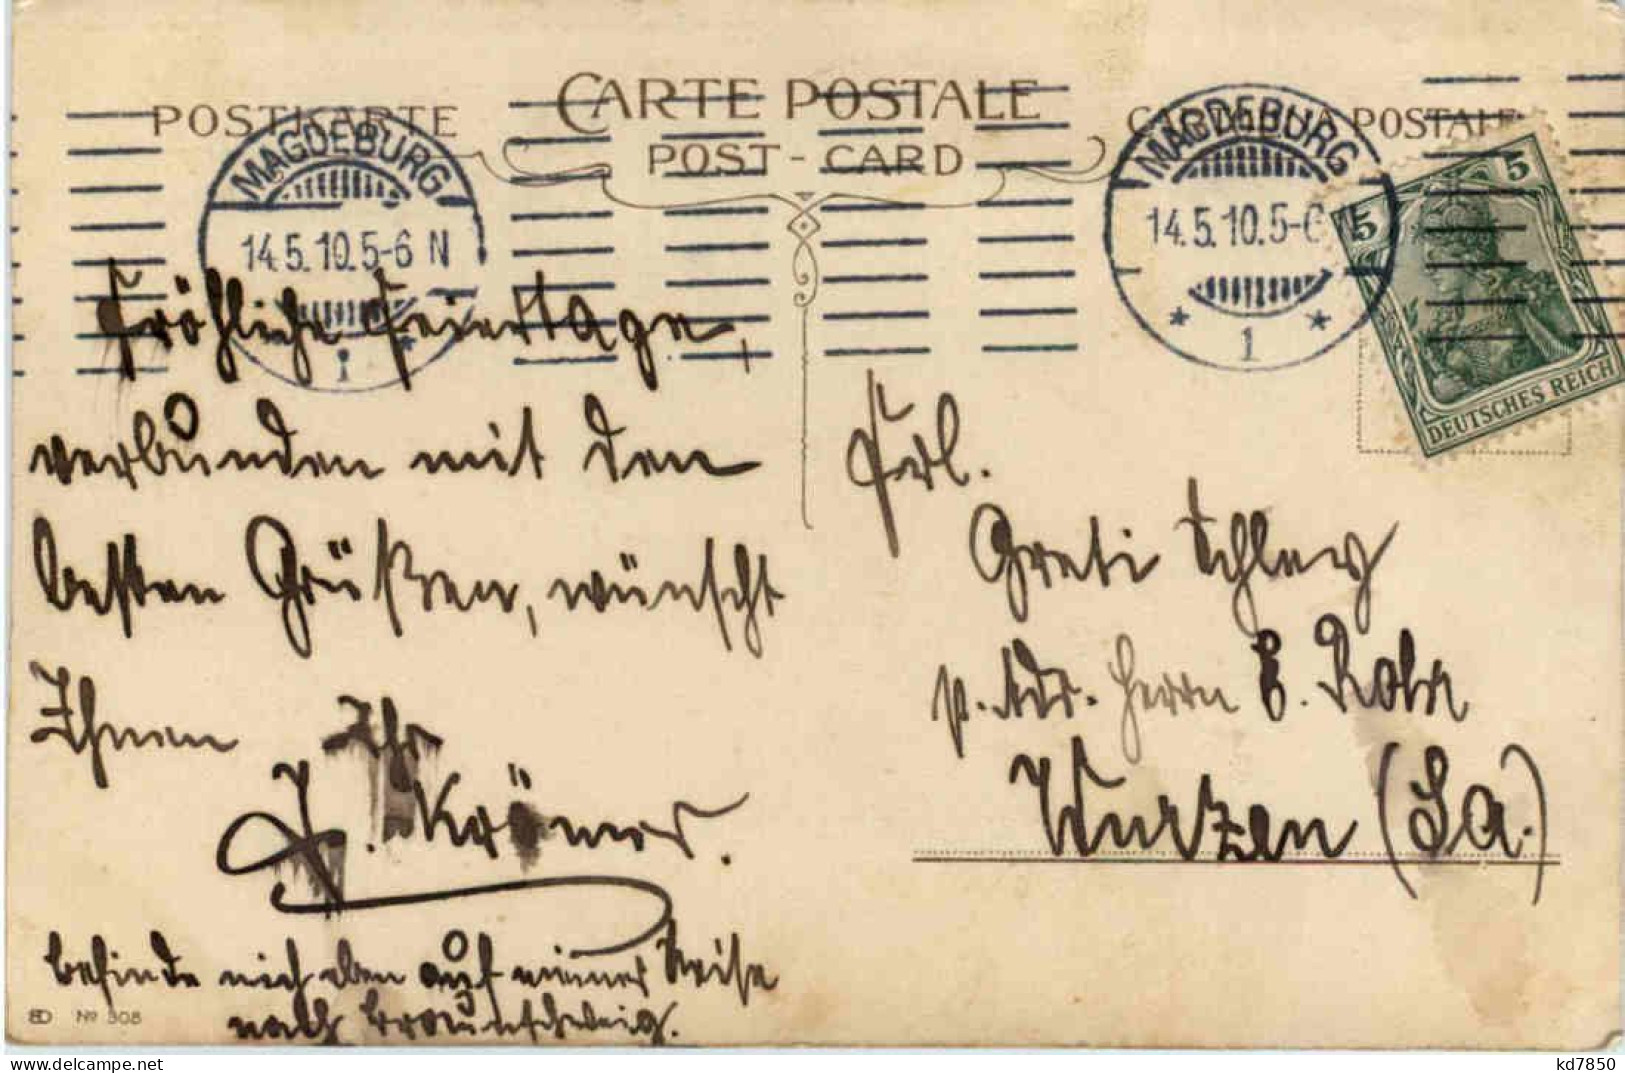 POSTKARTE
CARTE POSTALE
CARTOLINA POSTALE
POST-CARD
MAGDEBURG
14.5.10.5-6 N
1
MAGDEBURG
14.5.10.5-6
1
5 5
DEUTSCHES REICH
Fröhliche Feiertage,
verbunden mit den
besten Grüßen, wünscht
Ihnen Ihr
Krömer.
befinde mich eben auf einer Reise
nach Braunschweig.
Frl.
Greti Schley
p. Adr. Herrn E.
Wurzen (Sa.)
No 308
kd7850